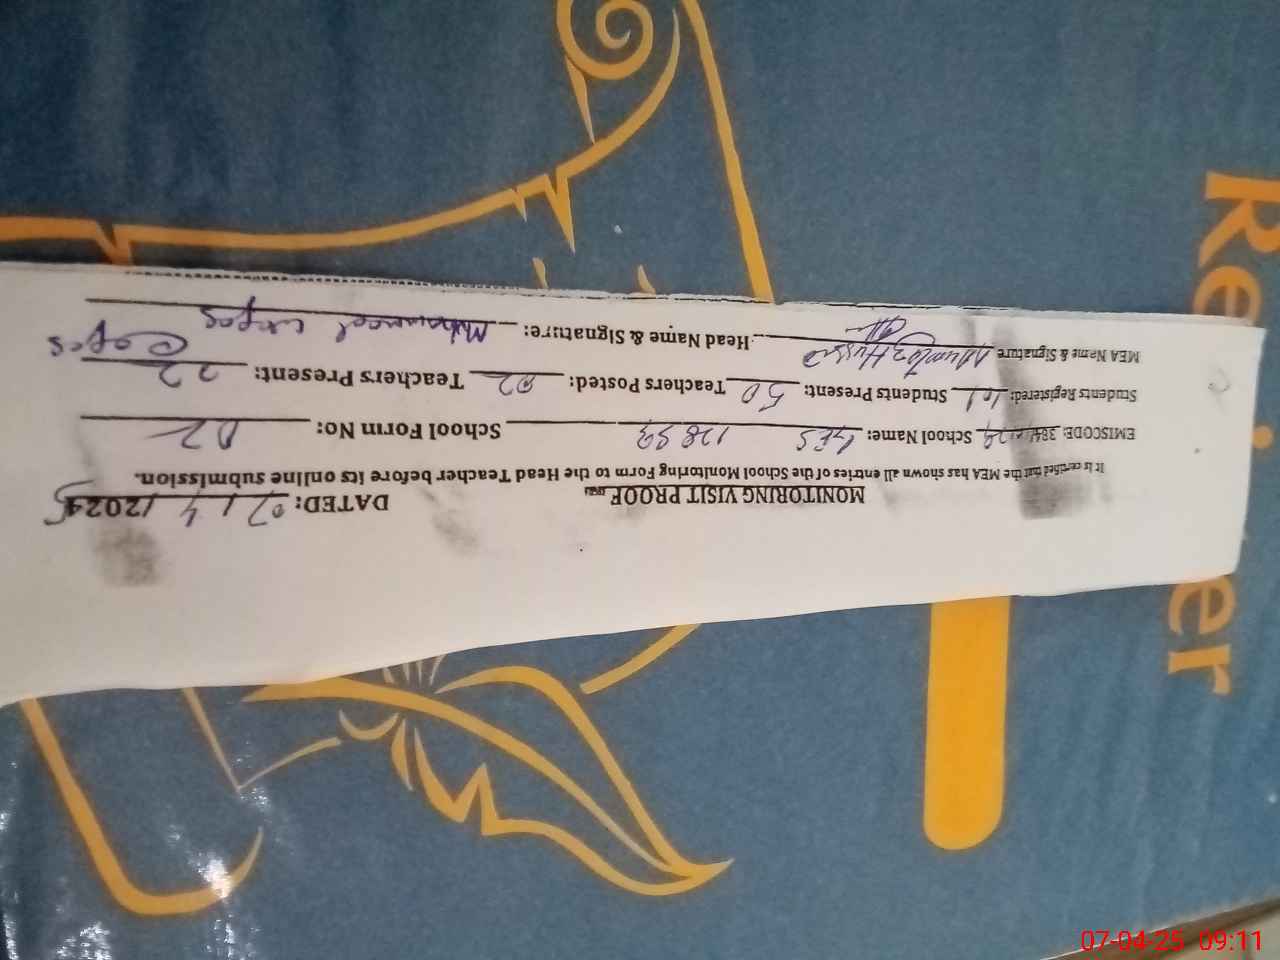 MONITORING VISIT PROOF DATED: 07/4/2025
It is certified that the MEA has shown all entries of the School Monitoring Form to the Head Teacher before its online submission.
EMISCODE: School Name: GES 128 99 School Form No: 02
Students Registered: 101 Students Present: 50 Teachers Posted: 02 Teachers Present: 02
MEA Name & Signature Mumtaz Hussain Head Name & Signature: Muhammad Waqas
Waqas
Re
er
07-04-25 09:11